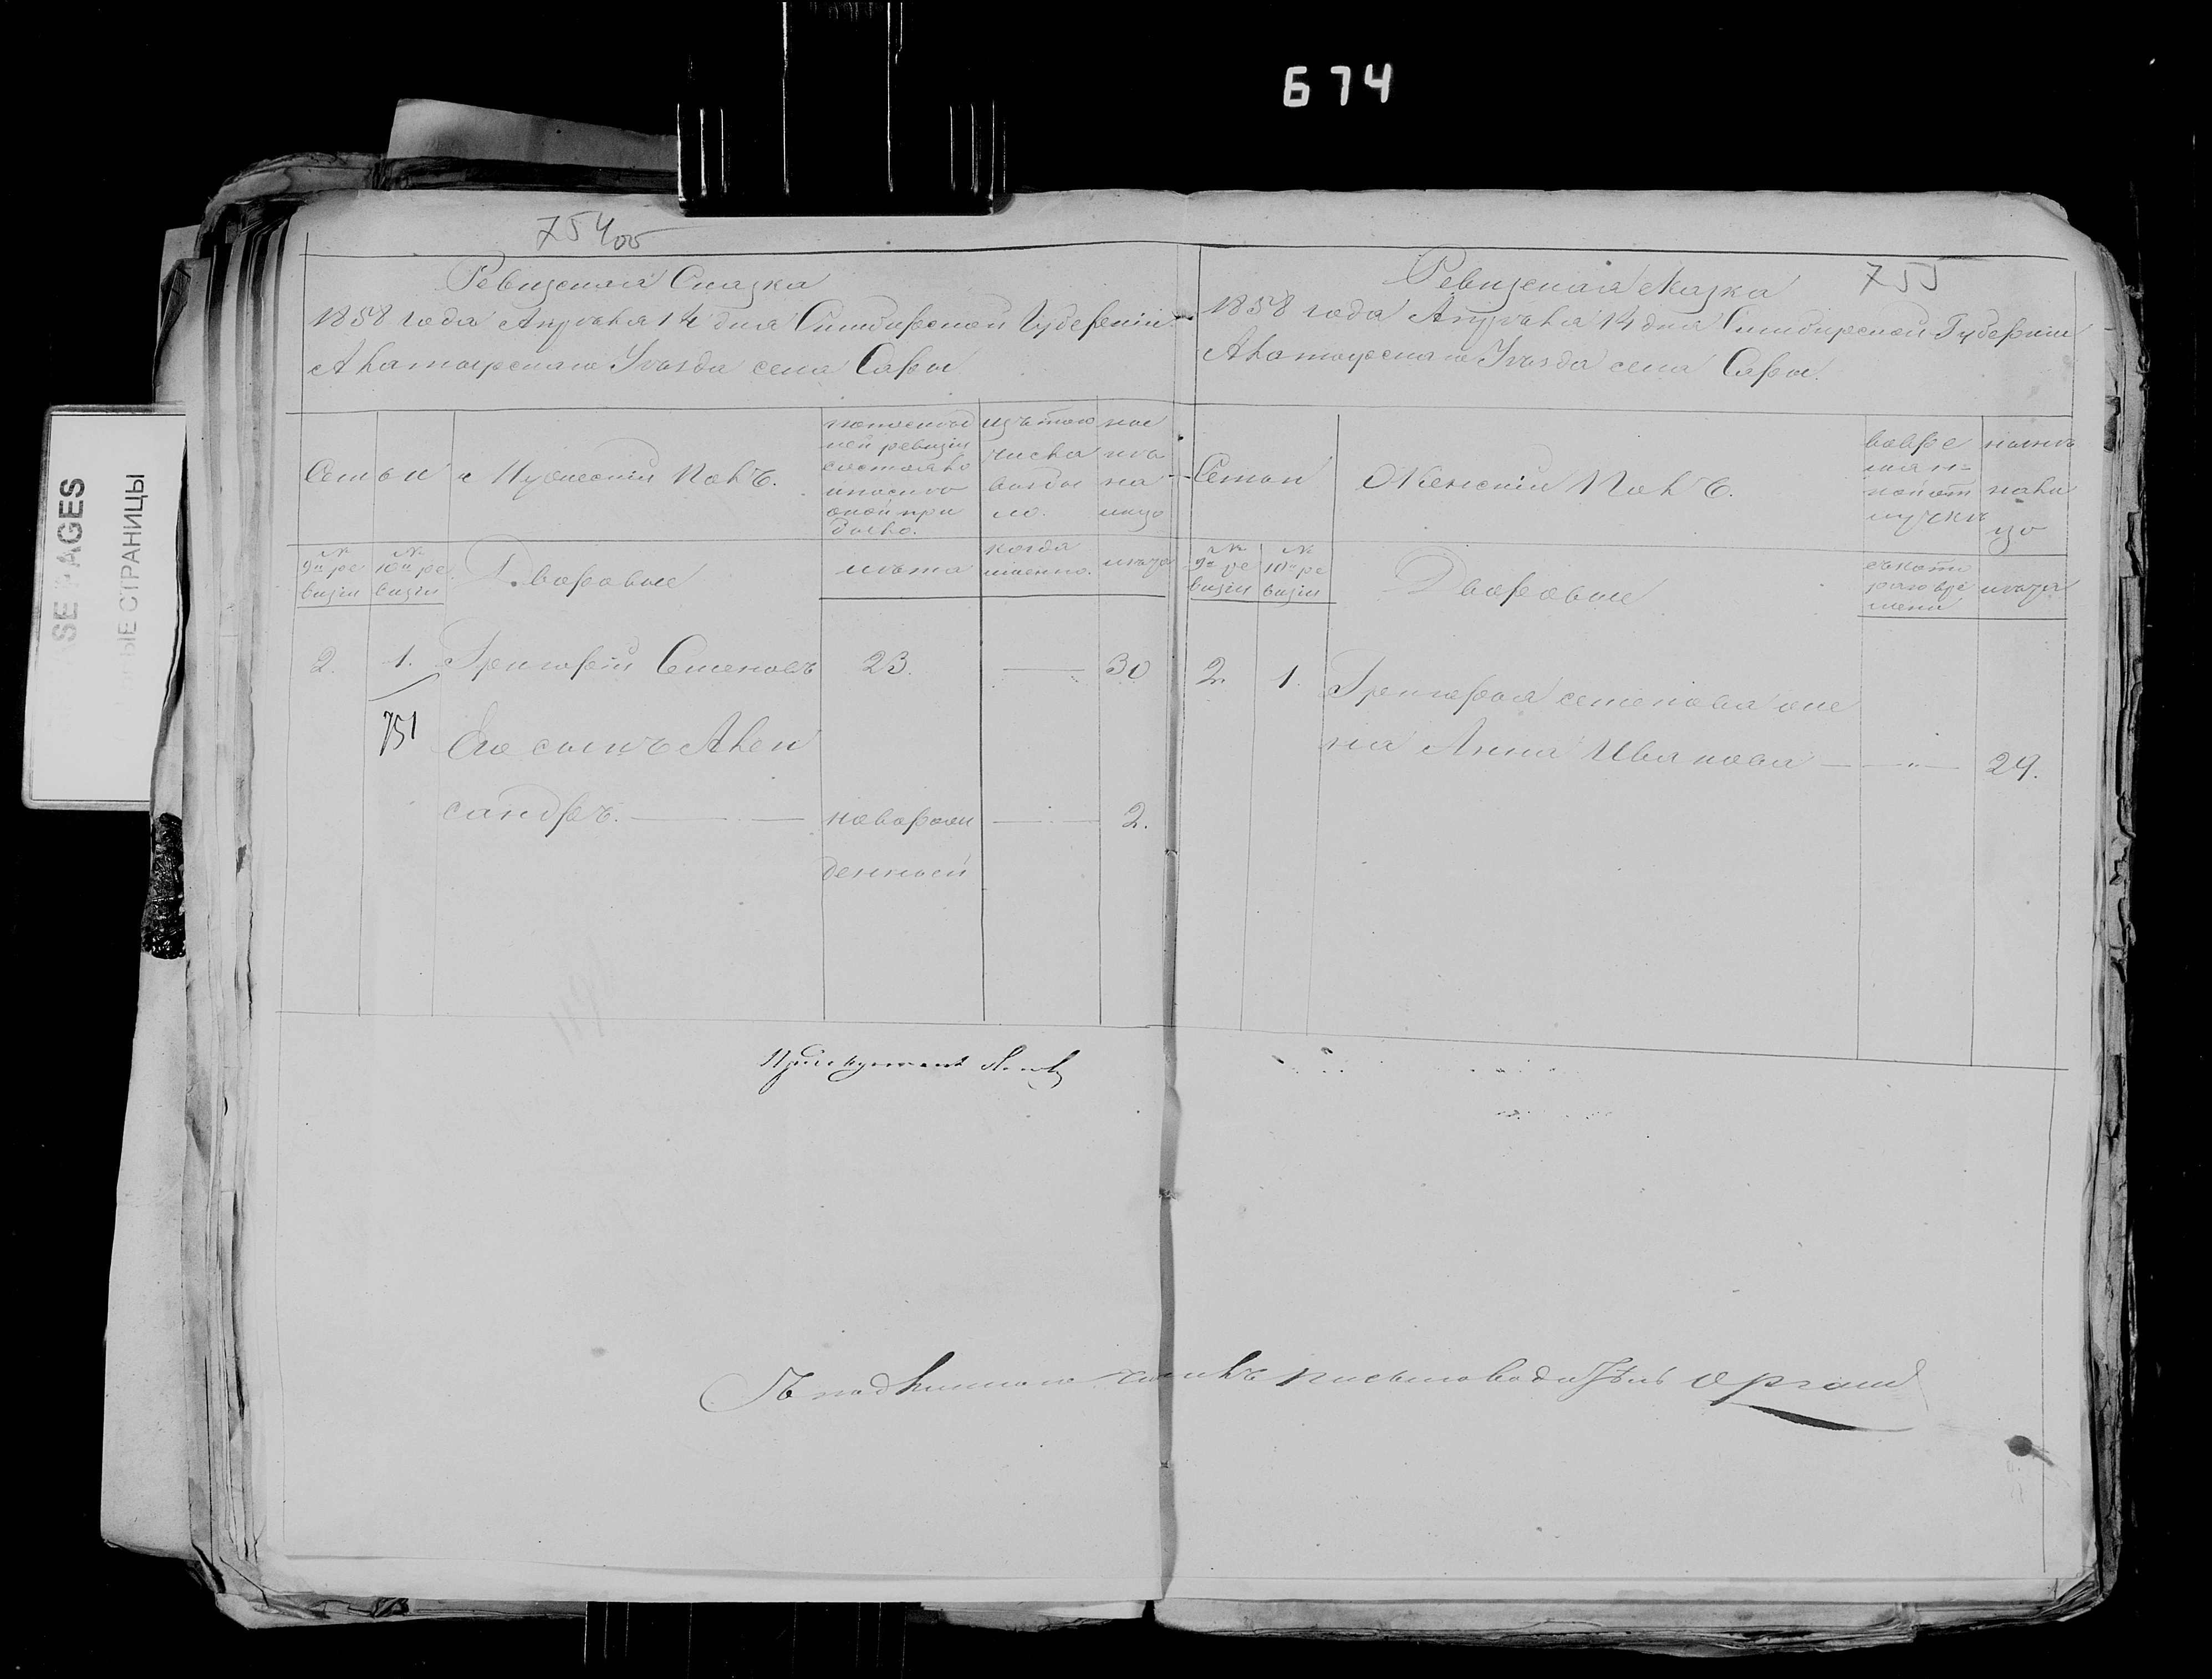 674
754 об
Ревизская Сказка
1858 года Апреля 14 дня Симбирской Губернии
Алатырскаго Уезда села Сары
Семьи
Мужескій Полъ.
по последней ревизіи состояло и после оной прибыло.
изъ того числа выбыло.
ныне на лицо
№ 9й ревизіи
№ 10й ревизіи
Дворовые
лета
когда именно.
лета
2. 1. Григорій Семеновъ 23. 30
751
Его сынъ Алек
сандръ. новорож 2.
денный
755
Ревизская Сказка
1858 года Апреля 14 дня Симбирской Губерніи
Алатырскаго Уезда села Сары.
Семьи
Женскій Полъ.
во временной отлучке
ныне на лицо
№ 9й ревизіи
№ 10й ревизіи
Дворовые
съ котораго времени
лета
2. 1. Григорья семенова же
на Анна Иванова 29.
письмоводитель
SE PAGES
СТРАНИЦЫ